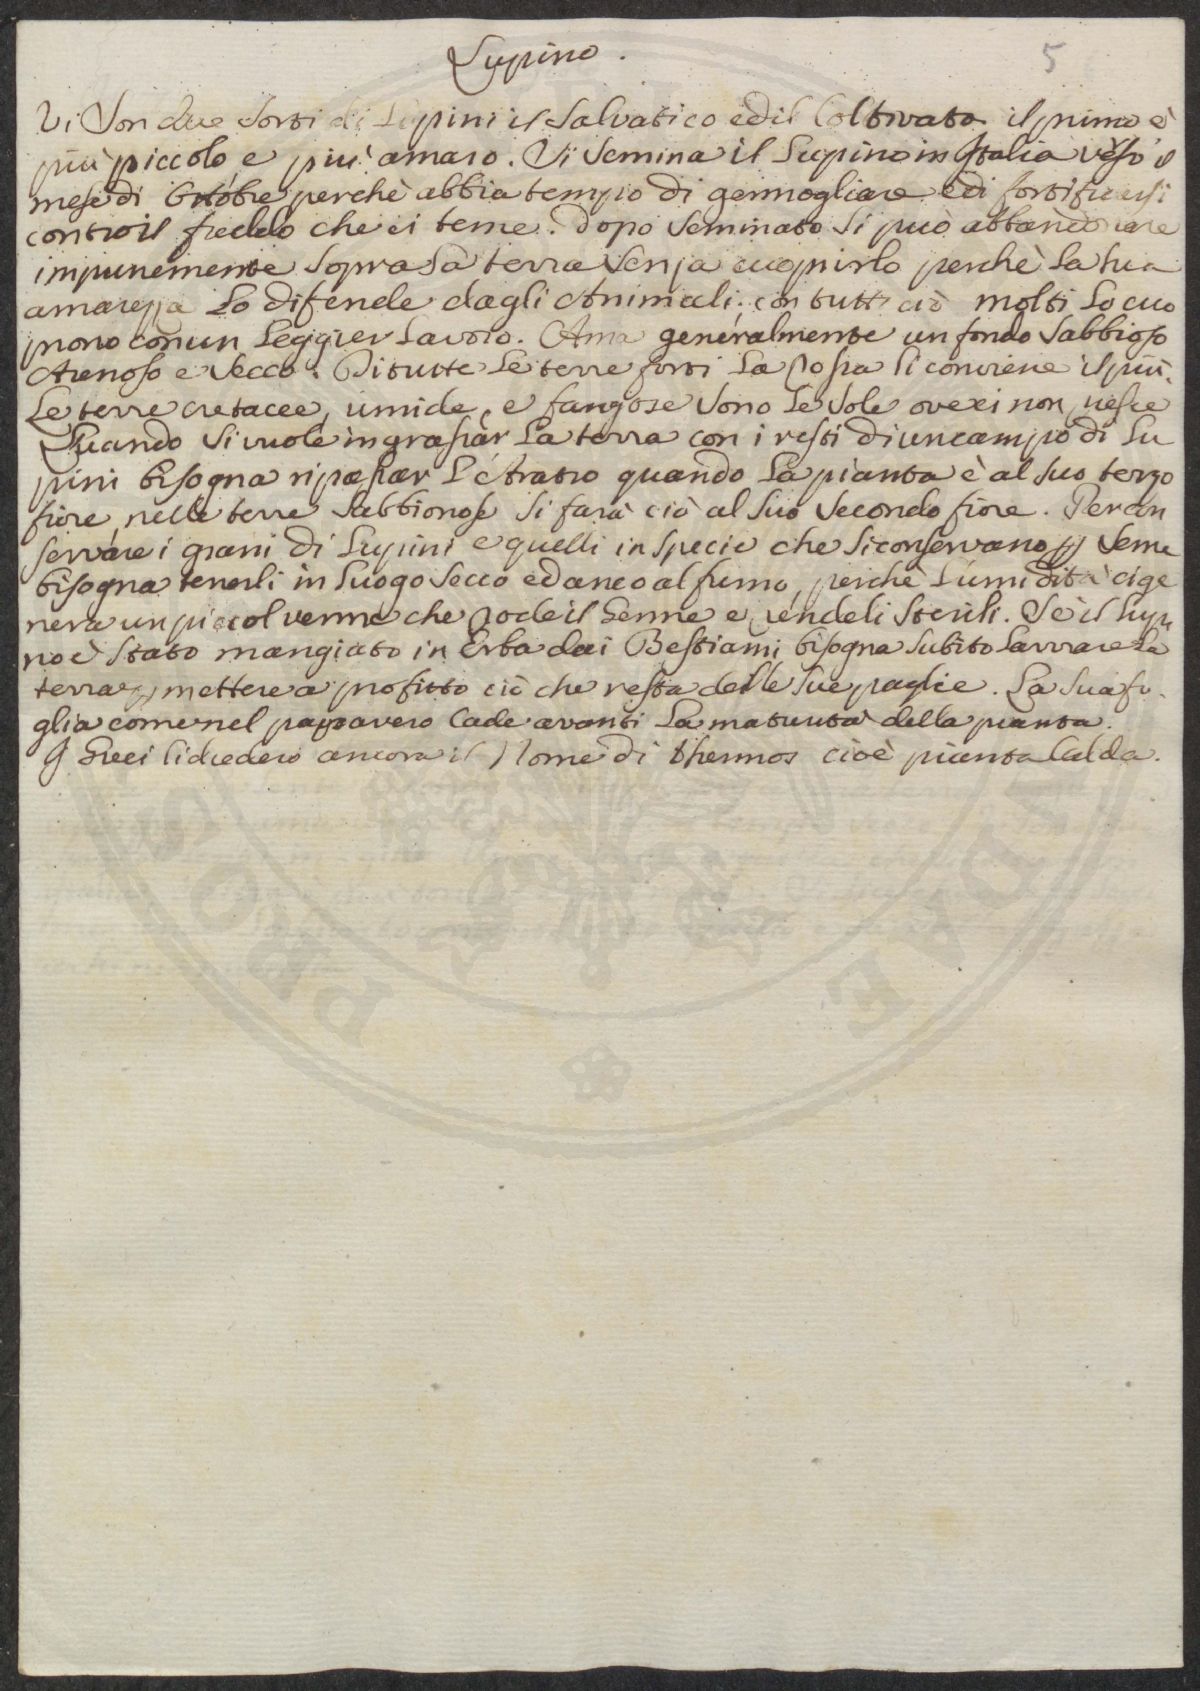 5
Lupino.
Vi son due sorti di Lupini il salvatico ed il Coltivato il primo è
più piccolo e più amaro. Si semina il Lupino in Italia verso il
mese di Ottobre perchè abbia tempo di germogliare e di fortificarsi
contro il freddo che ei teme. Dopo seminato si può abbandonare
impunemente sopra la terra senza cuoprirlo perchè la sua
amarezza lo difende dagli Animali; con tutto ciò molti lo cuo
prono con un leggier lavoro. Ama generalmente un fondo sabbioso
Arenoso e secco. Di tutte le terre forti la rossa li conviene il più.
Le terre cretacee, umide, e fangose sono le sole ove ei non riesce
Quando si vuole ingrassar la terra con i resti di un campo di Lu
pini bisogna ripassar l'Aratro quando la pianta è al suo terzo
fiore, nelle terre sabbionose si farà ciò al suo secondo fiore. Per con
servare i grani di Lupini e quelli in specie che si conservano pp seme
bisogna tenerli in luogo secco ed anco al fumo, perchè l'umidità ci ge
nera un piccol verme che rode il Germe e rendeli sterili. Se il Lupi
no è stato mangiato in Erba dai Bestiami bisogna subito lavorare la
terra pp mettere a profitto ciò che resta delle sue paglie. La sua fo-
glia come nel papavero Cade avanti la maturità della pianta.
I Greci li diedero ancora il Nome di thermos cioè pianta Calda.
PROVIDAE